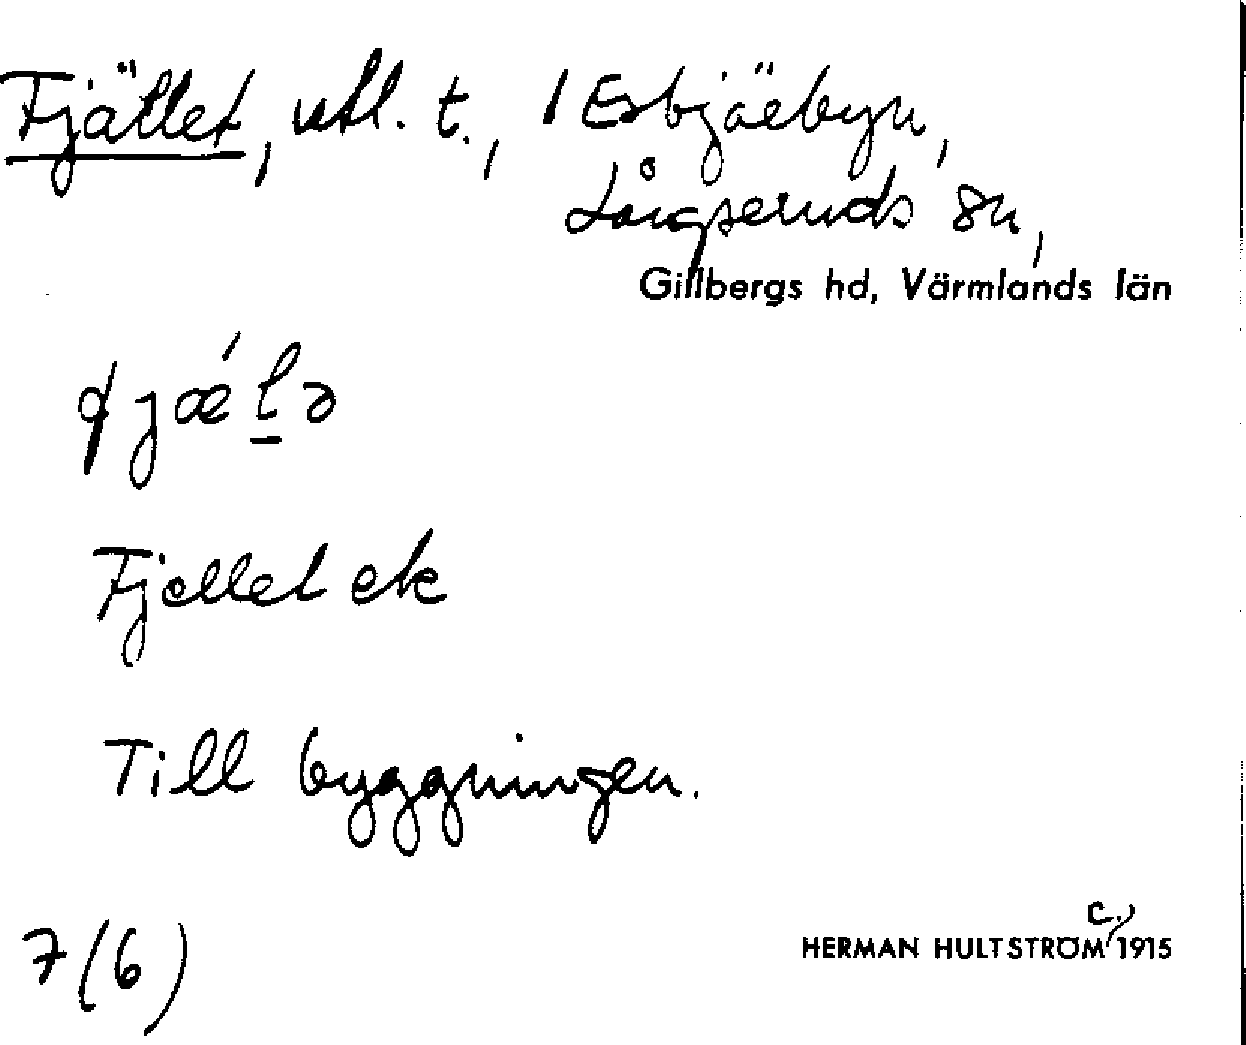 Fjället, utl. t., i Esbjäebyn,
Långseruds sn,
Gillbergs hd, Värmlands län
Fjellet ek
Till byggningen.
7 (6)
c.,
HERMAN HULTSTRÖM 1915